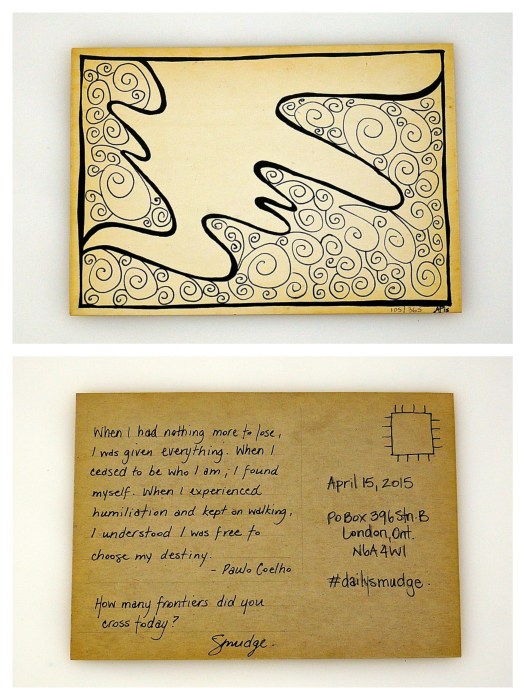 105/365
When I had nothing more to lose,
I was given everything. When I
ceased to be who I am, I found
myself. When I experienced
humiliation and kept on walking,
I understood I was free to
choose my destiny.
- Paulo Coelho
How many frontiers did you
cross today?
Smudge.
April 15, 2015
PO Box 396 Stn. B
London, Ont.
N6A 4W1
#dailysmudge.